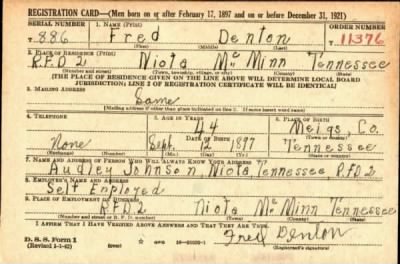 REGISTRATION CARD—(Men born on or after February 17, 1897 and on or before December 31, 1921)
SERIAL NUMBER 1. NAME (Print) ORDER NUMBER
T 886 Fred Denton T 11376
(First) (Middle) (Last)
2. PLACE OF RESIDENCE (Print)
R.F.D 2 Niota Mc Minn Tennessee
(Number and street) (Town, township, village, or city) (County) (State)
[THE PLACE OF RESIDENCE GIVEN ON THE LINE ABOVE WILL DETERMINE LOCAL BOARD
JURISDICTION; LINE 2 OF REGISTRATION CERTIFICATE WILL BE IDENTICAL]
3. MAILING ADDRESS
Same
[Mailing address if other than place indicated on line 2. If same insert word same]
4. TELEPHONE 5. AGE IN YEARS 6. PLACE OF BIRTH
44 Meigs, Co.
DATE OF BIRTH (Town or county)
None Sept. 12 1897 Tennessee
(State or country)
7. NAME AND ADDRESS OF PERSON WHO WILL ALWAYS KNOW YOUR ADDRESS
Audley Johnson Niota, Tennessee, R.F.D 2
8. EMPLOYER'S NAME AND ADDRESS
Self Employed
9. PLACE OF EMPLOYMENT OR BUSINESS
R.F.D 2 Niota Mc Minn Tennessee
(Number and street or R. F. D. number) (Town) (County) (State)
I AFFIRM THAT I HAVE VERIFIED ABOVE ANSWERS AND THAT THEY ARE TRUE.
D. S. S. Form 1 Fred Denton
(Revised 1-1-42) (Registrant's signature)